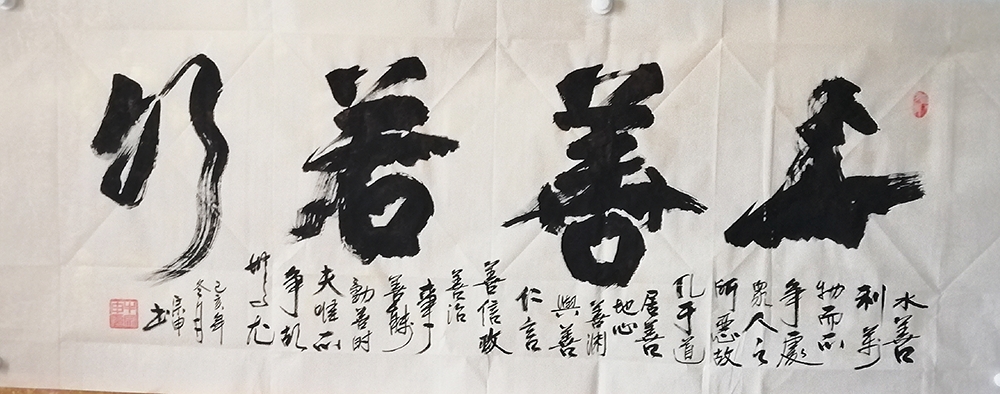 上善若水
水善
利萬
物而不
争處
衆人之
所惡故
几于道
居善
地心
善渊
與善
仁言
善信政
善治
事
善能
動善时
夫唯不
争故
無尤
己亥年
冬月
宗申
书